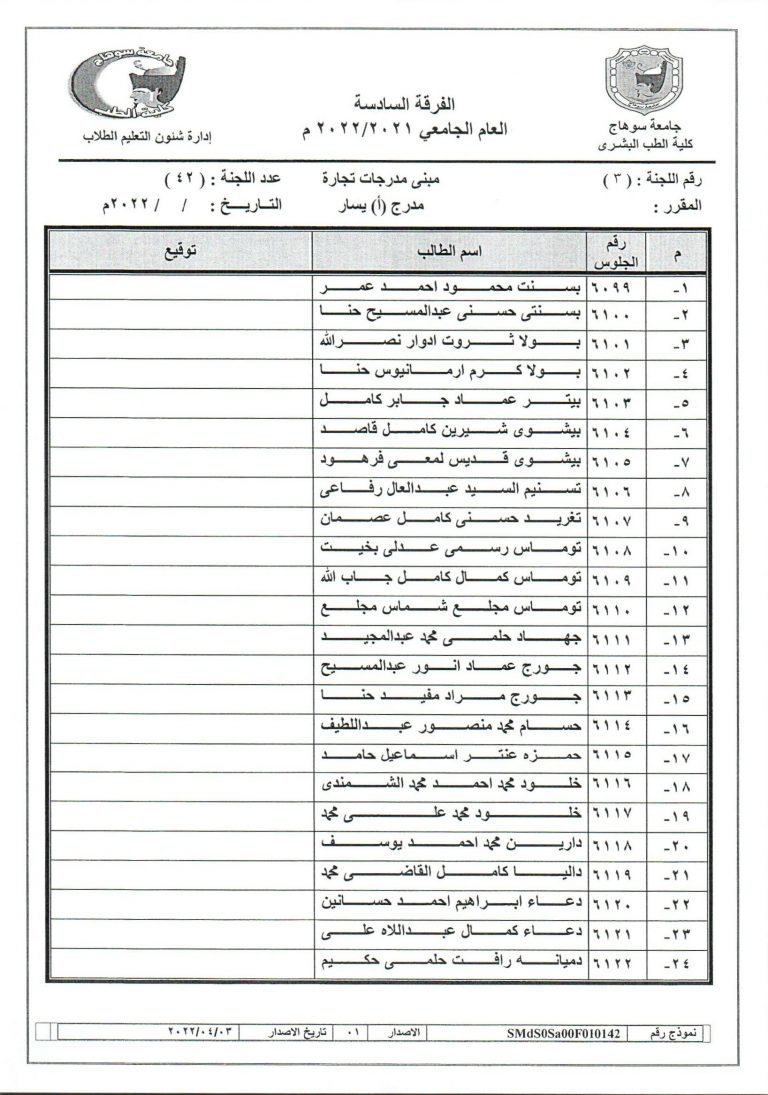 جامعة سوهاج
كلية الطب البشرى
الفرقة السادسة
العام الجامعي ٢٠٢٢/٢٠٢١ م
جامعة سوهاج
كلية الطب
إدارة شئون التعليم الطلاب
رقم اللجنة : ( ٣ ) مبنى مدرجات تجارة عدد اللجنة : ( ٤٢ )
المقرر : مدرج (أ) يسار التاريخ : / / ٢٠٢٢م
م رقم الجلوس اسم الطالب توقيع
١- ٦٠٩٩ بسنت محمود احمد عمر
٢- ٦١٠٠ بسنتى حسنى عبدالمسيح حنا
٣- ٦١٠١ بولا ثروت ادوار نصرالله
٤- ٦١٠٢ بولا كرم ارمانيوس حنا
٥- ٦١٠٣ بيتر عماد جابر كامل
٦- ٦١٠٤ بيشوى شيرين كامل قاصد
٧- ٦١٠٥ بيشوى قديس لمعى فرهود
٨- ٦١٠٦ تسنيم السيد عبدالعال رفاعى
٩- ٦١٠٧ تغريد حسنى كامل عصمان
١٠- ٦١٠٨ توماس رسمى عدلى بخيت
١١- ٦١٠٩ توماس كمال كامل جاب الله
١٢- ٦١١٠ توماس مجلع شماس مجلع
١٣- ٦١١١ جهاد حلمى محمد عبدالمجيد
١٤- ٦١١٢ جورج عماد انور عبدالمسيح
١٥- ٦١١٣ جورج مراد مفيد حنا
١٦- ٦١١٤ حسام محمد منصور عبداللطيف
١٧- ٦١١٥ حمزه عنتر اسماعيل حامد
١٨- ٦١١٦ خلود محمد احمد محمد الشمندى
١٩- ٦١١٧ خلود محمد على محمد
٢٠- ٦١١٨ دارين محمد احمد يوسف
٢١- ٦١١٩ داليا كامل القاضى محمد
٢٢- ٦١٢٠ دعاء ابراهيم احمد حسانين
٢٣- ٦١٢١ دعاء كمال عبداللاه على
٢٤- ٦١٢٢ دميانه رافت حلمى حكيم
نموذج رقم SMdS0Sa00F010142 الاصدار ٠١ تاريخ الاصدار ٢٠٢٢/٠٤/٠٣